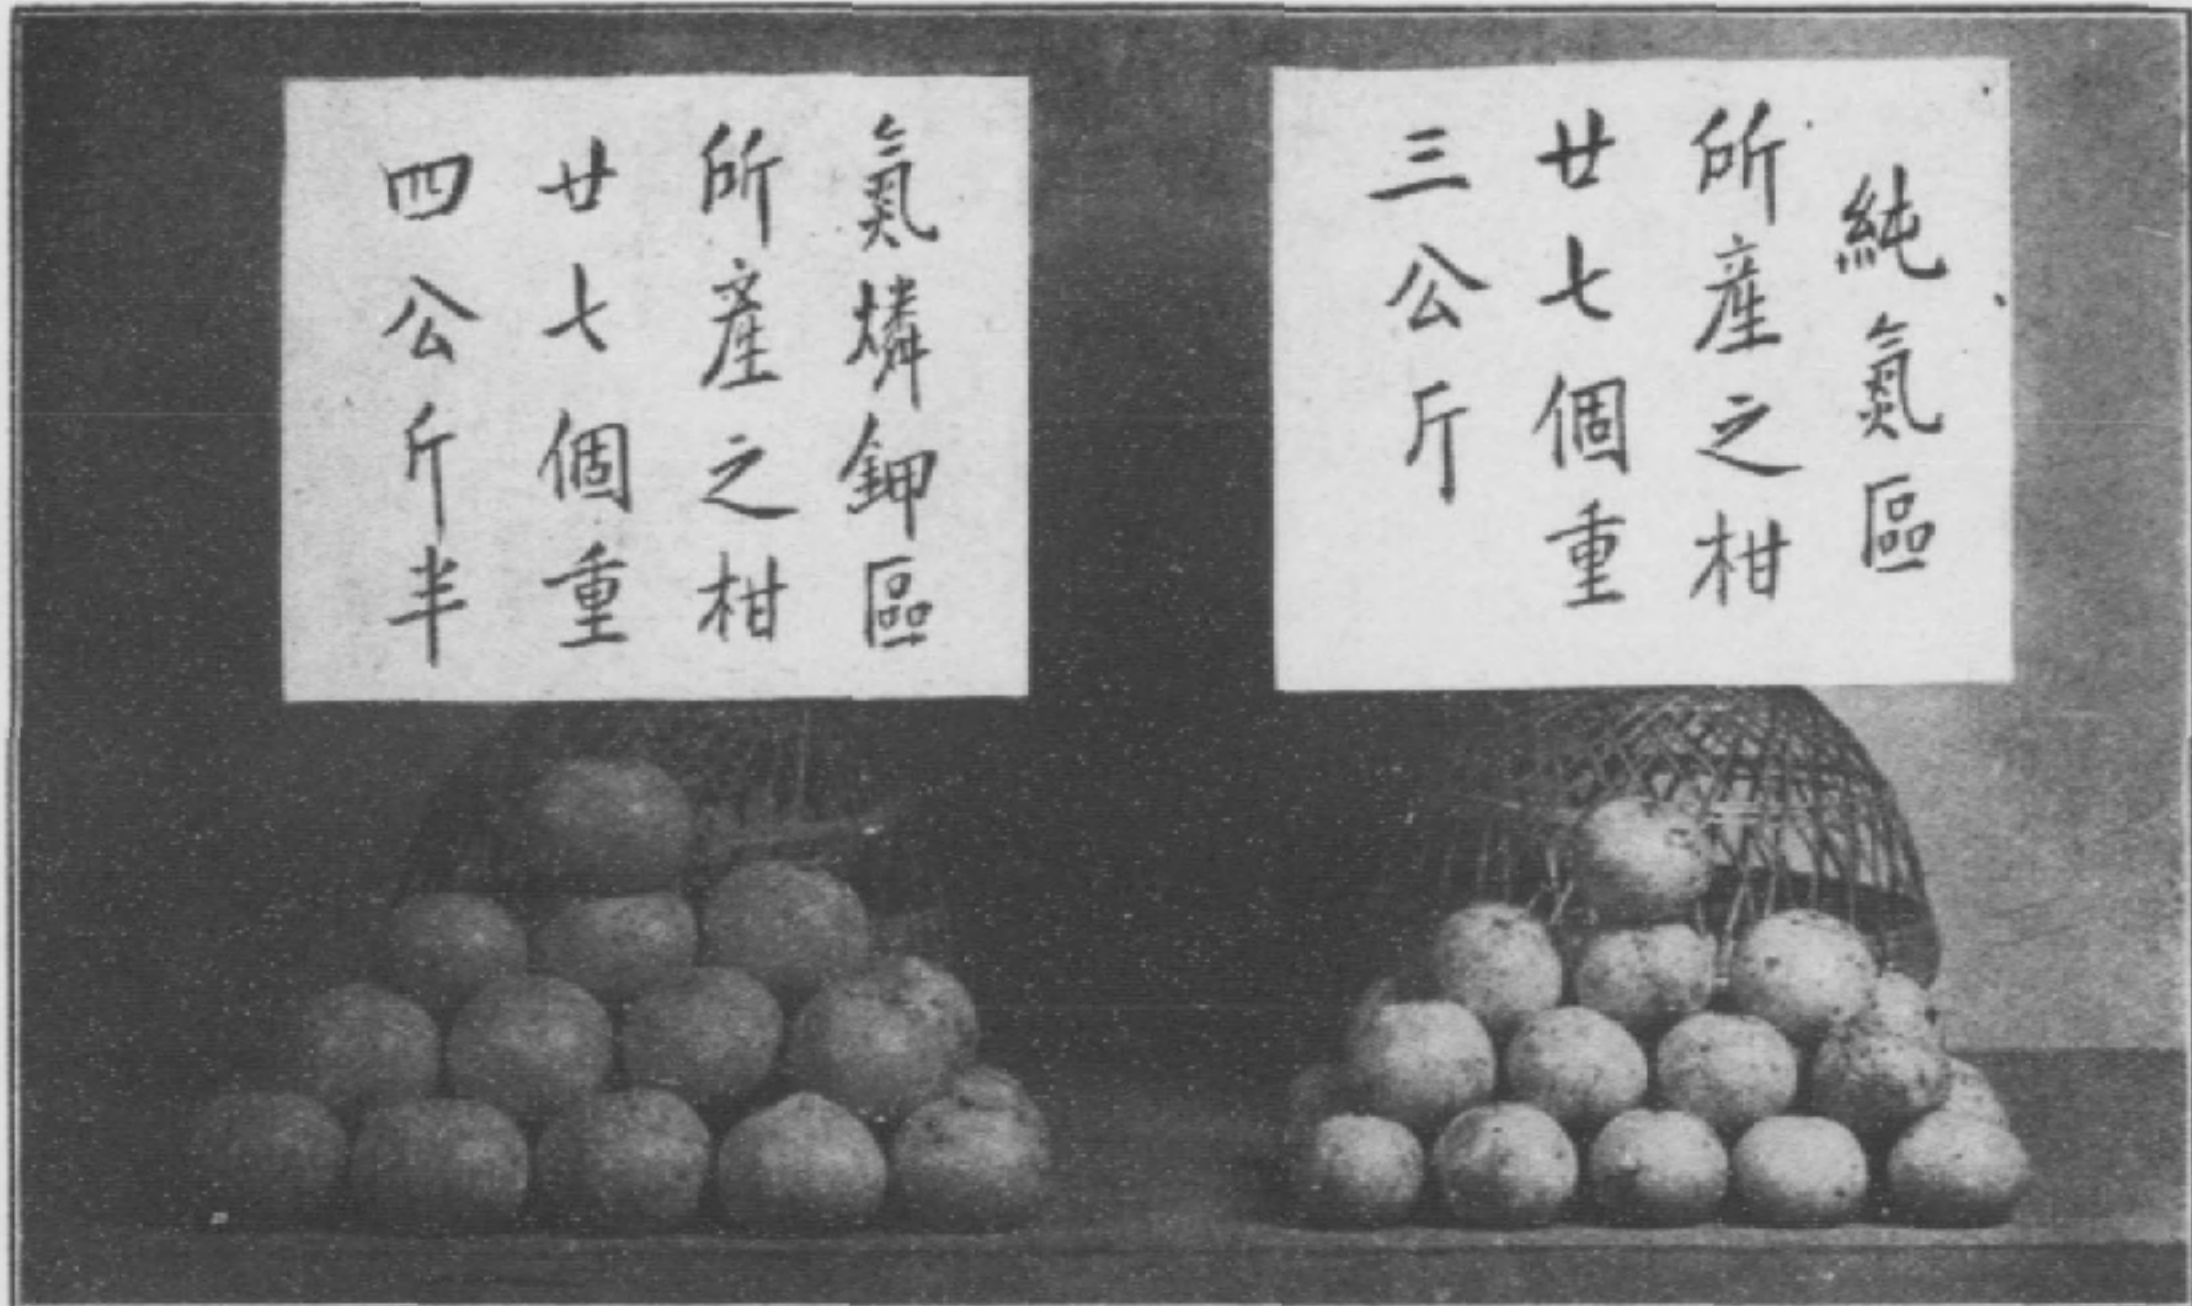 純氮區
所產之柑
廿七個重
三公斤
氮燐鉀區
所產之柑
廿七個重
四公斤半